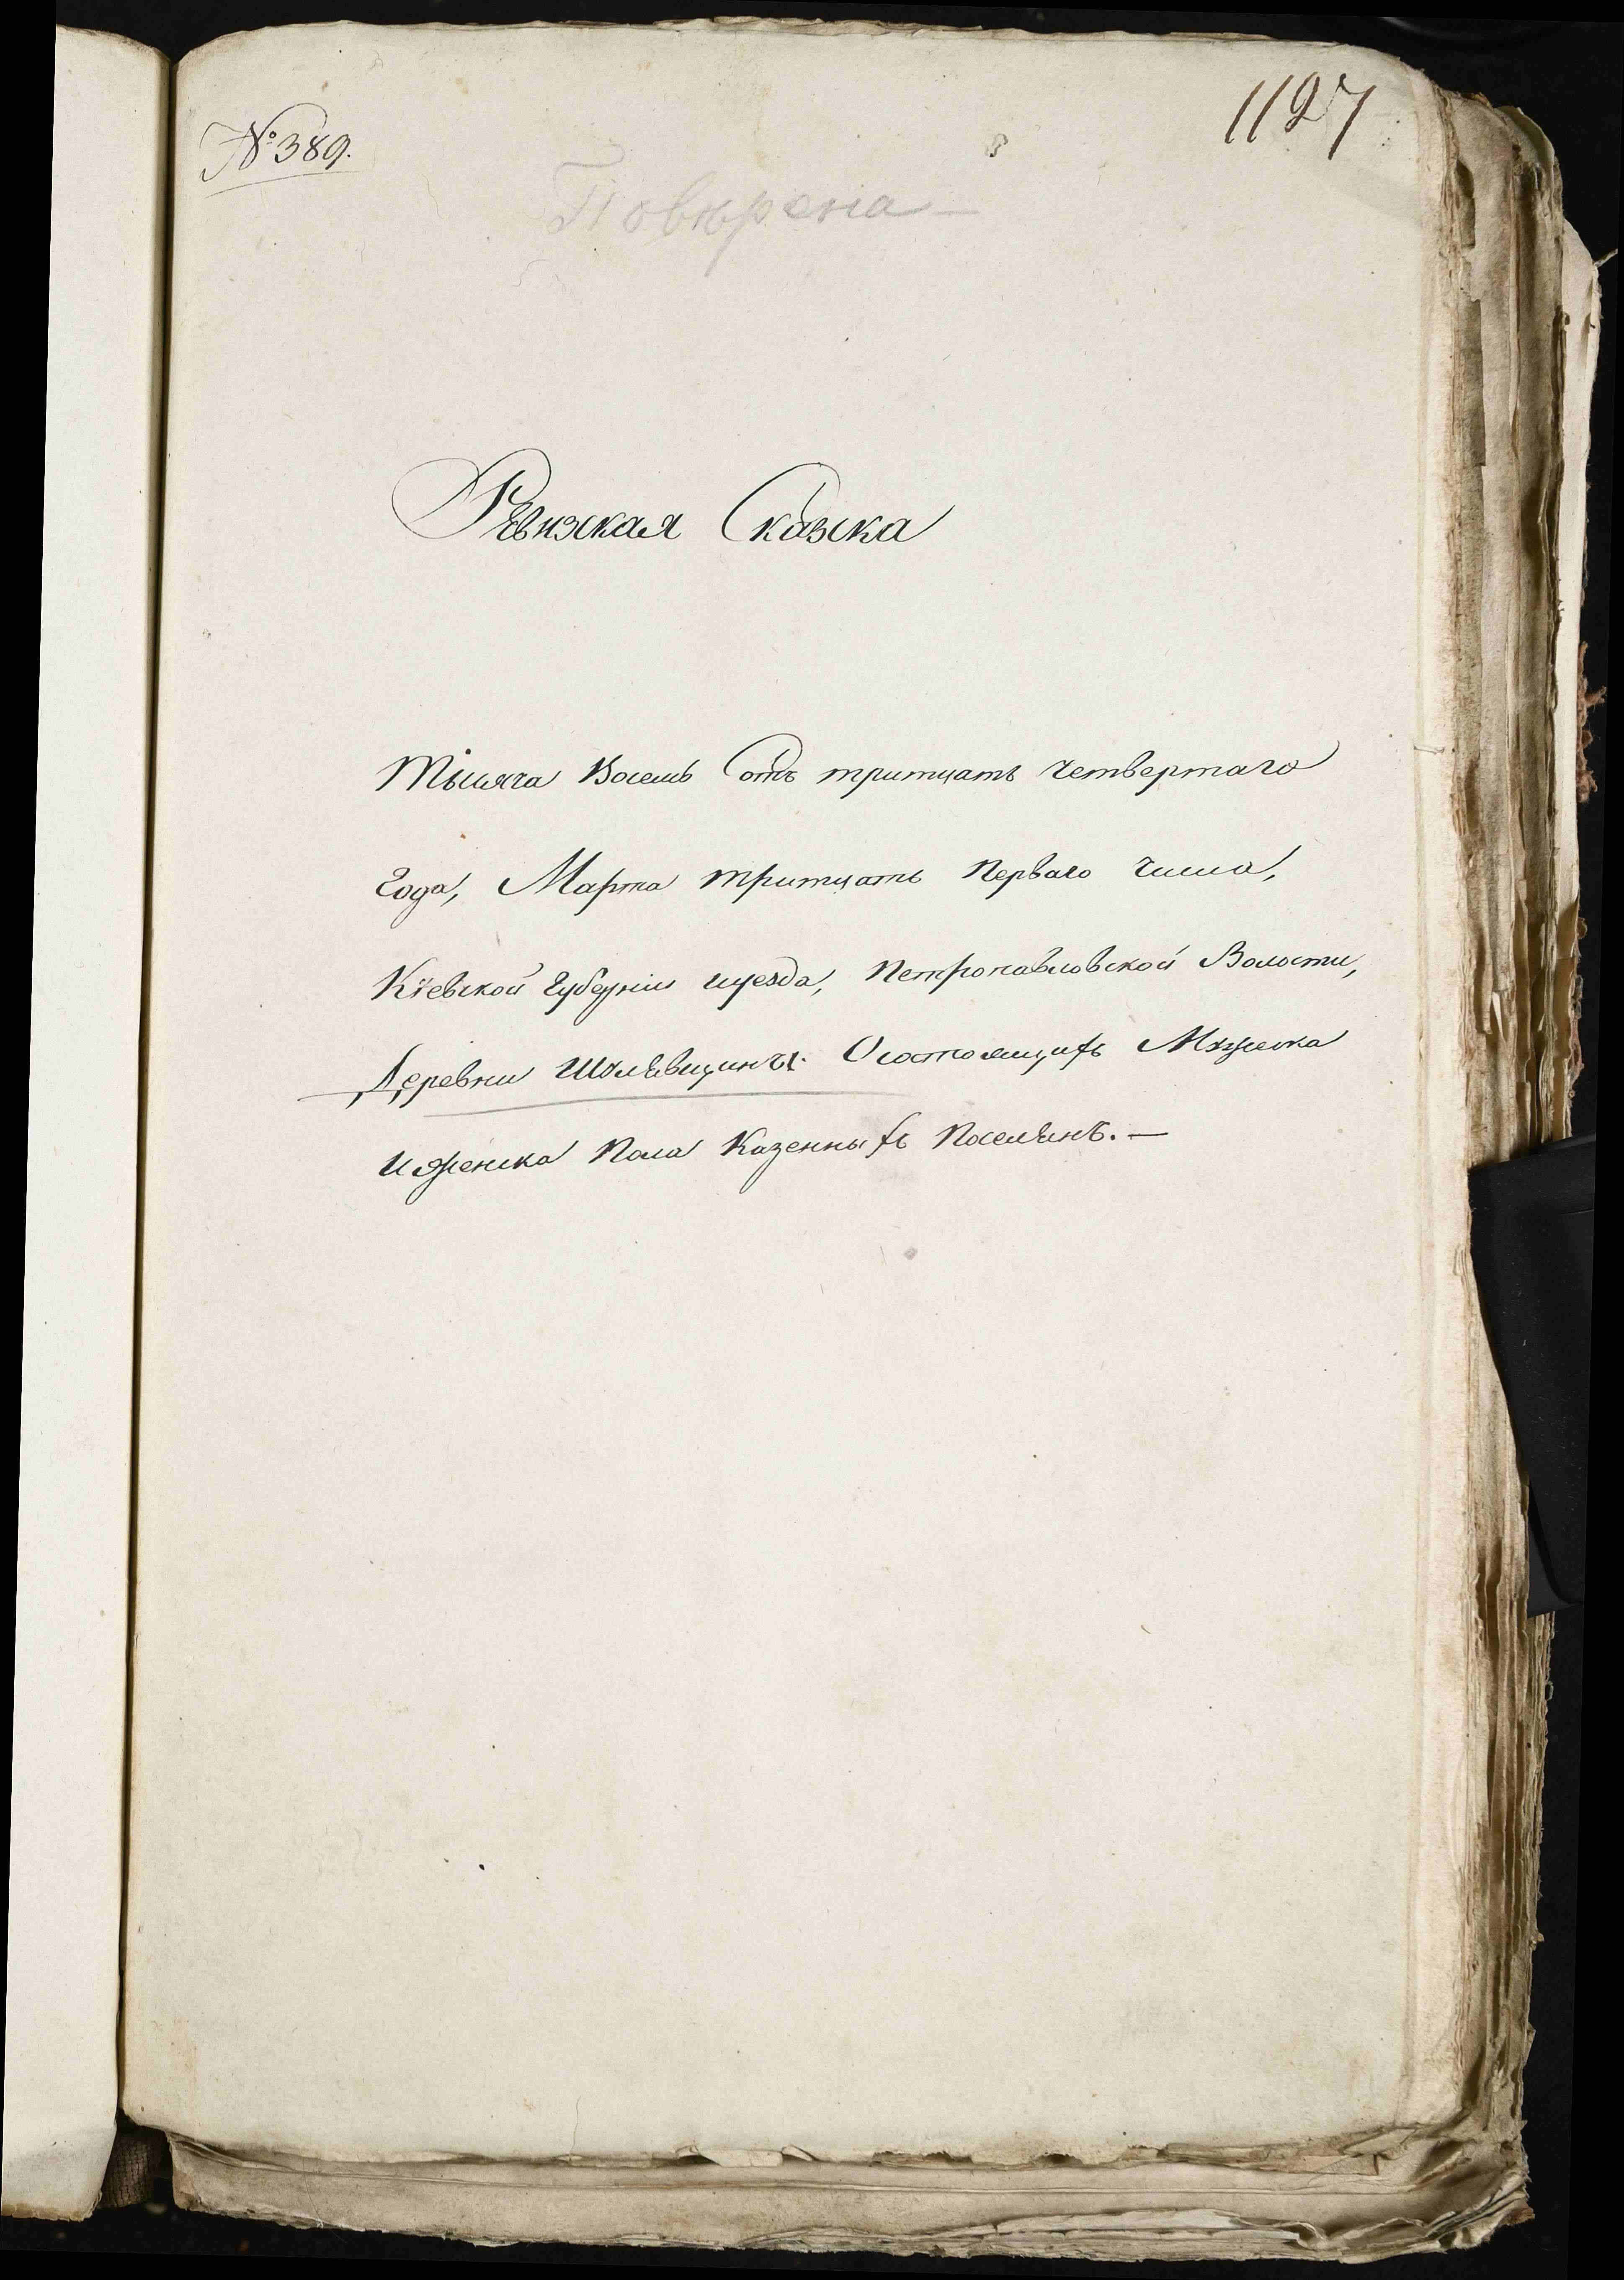 № 389.
1127
Повѣрена
Ревизкая Сказка
Тысяча Восемь Сотъ тритцать четвертаго
года, Марта тритцать Перваго числа,
Кіевской Губерніи иуезда, Петропавловской Волости,
Деревни Шулявщины. Осостоящихъ Мужеска
иженска Пола Казенныхъ Поселянъ. —